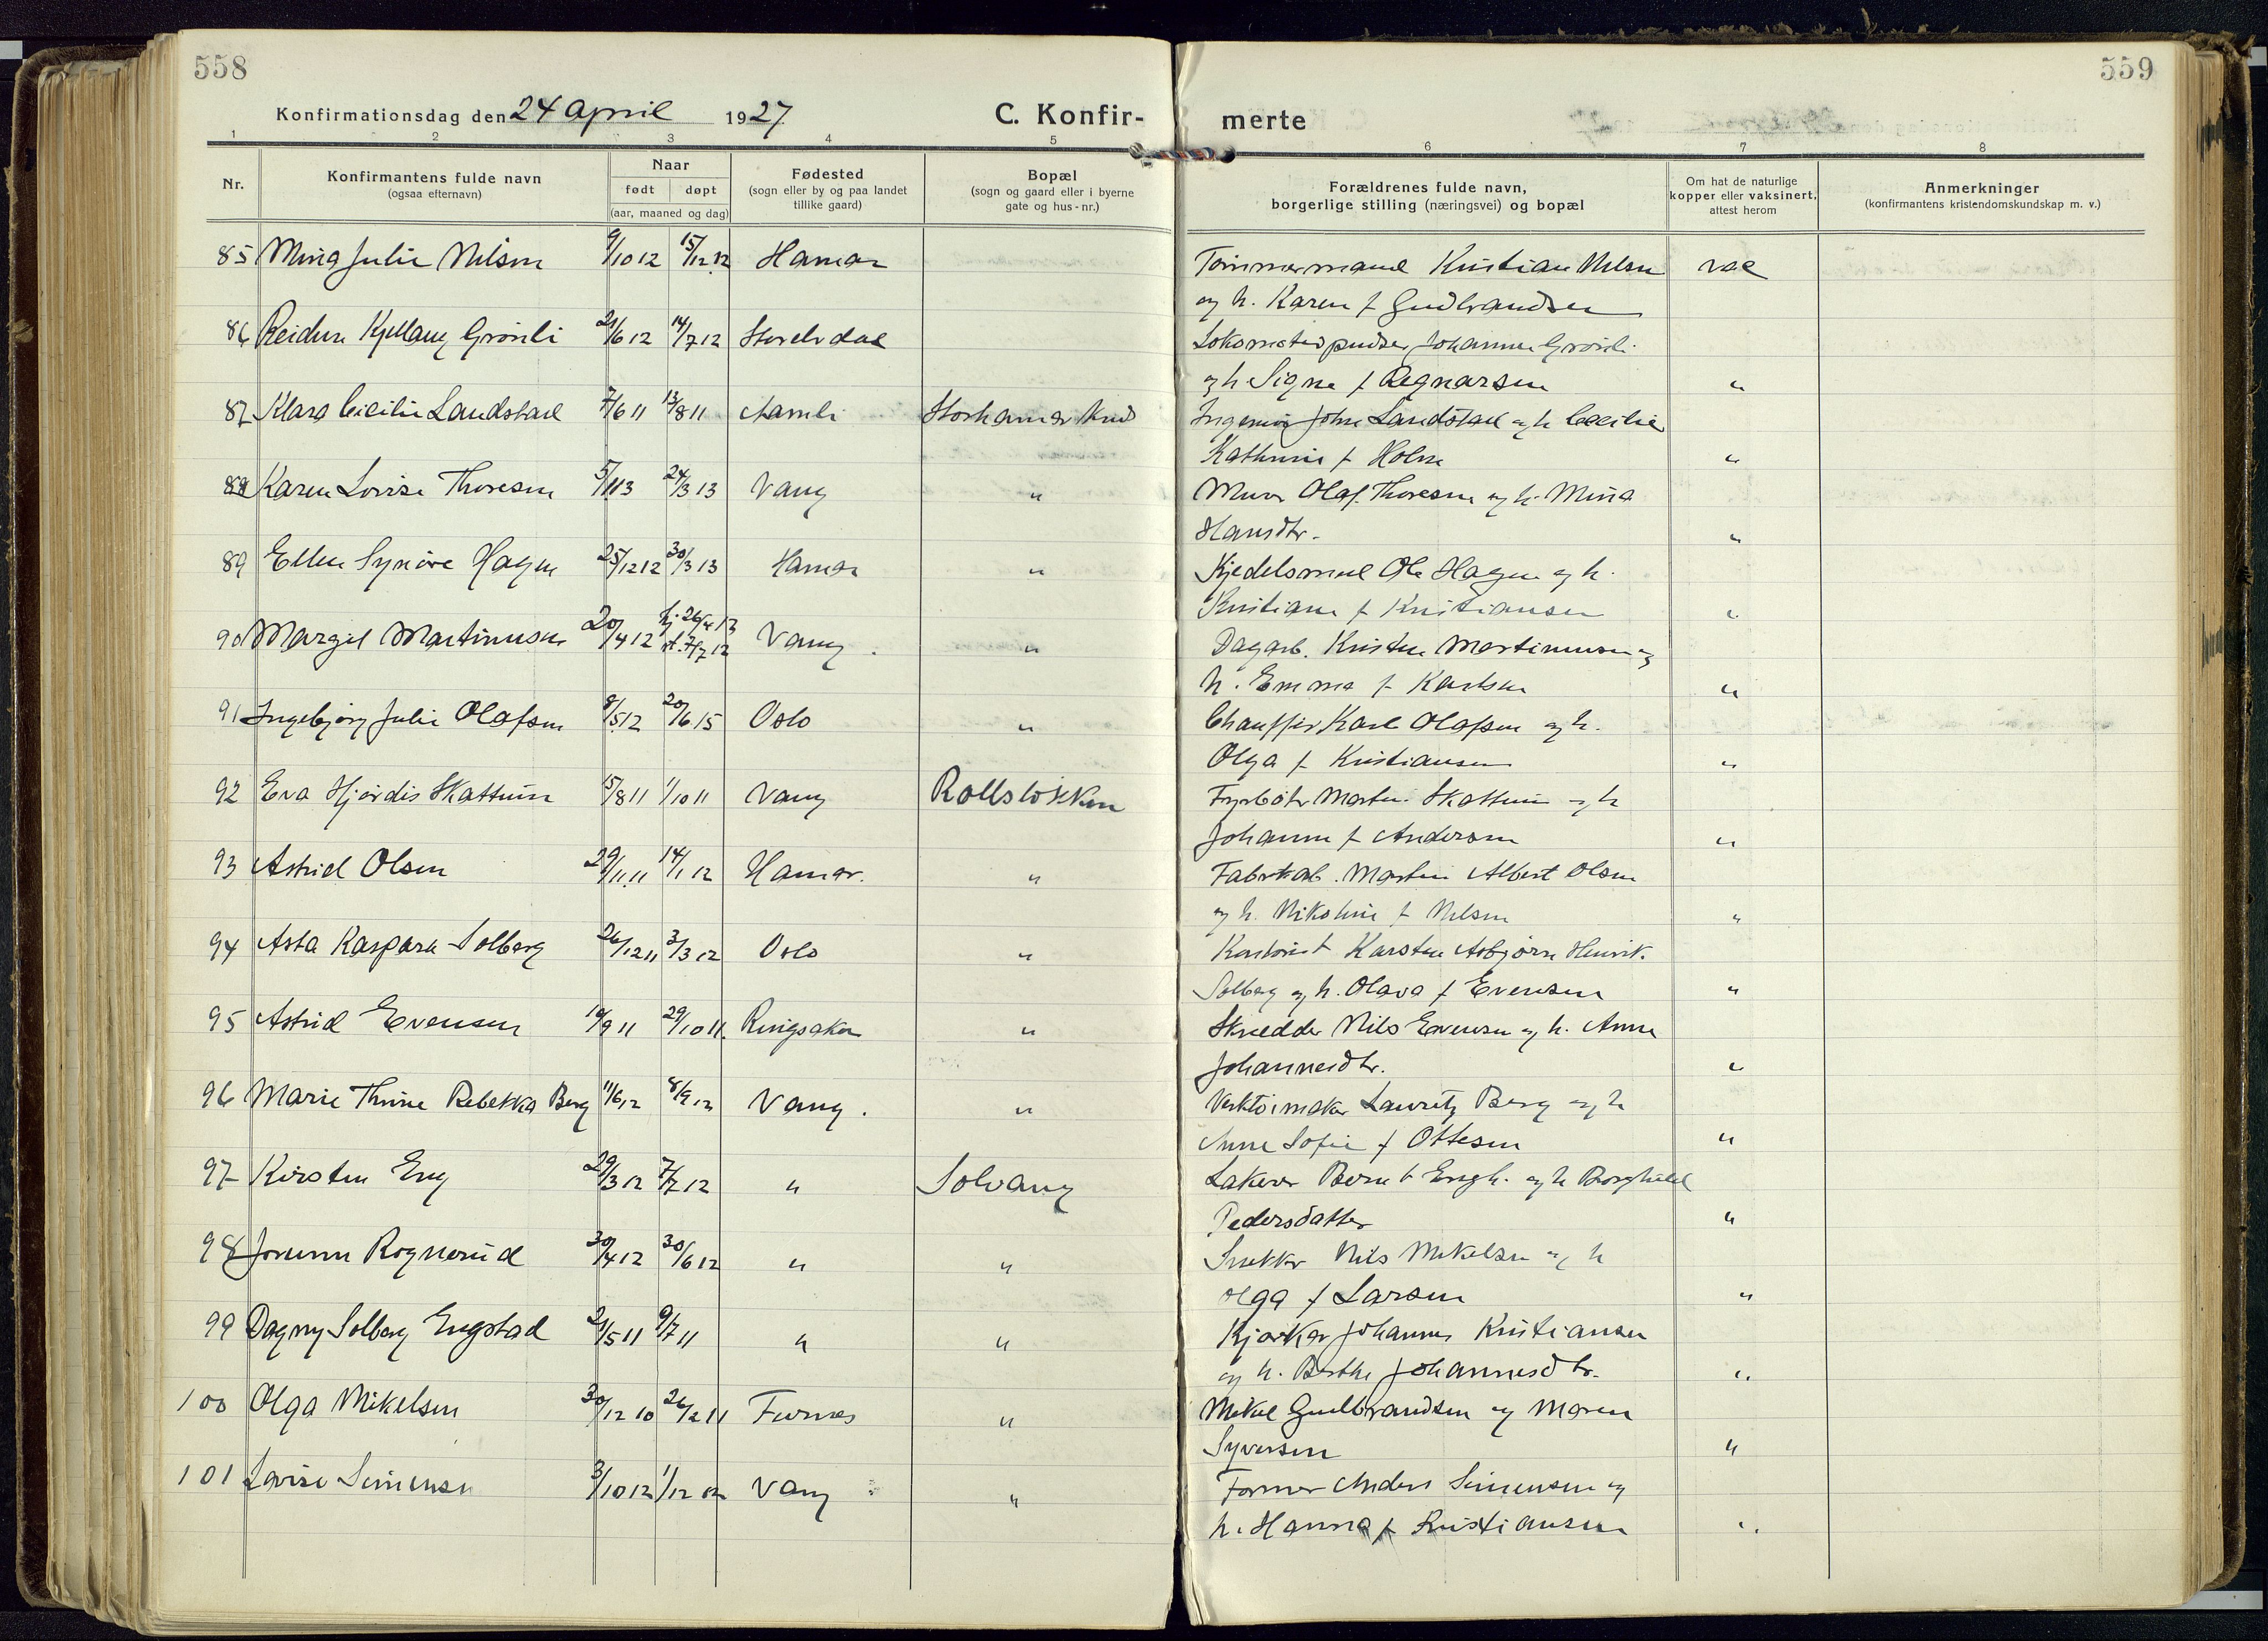 558
559
Konfirmationsdag den 24 April 1927
C. Konfir-
merte
1 2 3 4 5 6 7 8
Nr.
Konfirmantens fulde navn
(ogsaa efternavn)
Naar
født døpt
(aar, maaned og dag)
Fødested
(sogn eller by og paa landet
tillike gaard)
Bopæl
(sogn og gaard eller i byerne
gate og hus-nr.)
Forældrenes fulde navn,
borgerlige stilling (næringsvei) og bopæl
Om hat de naturlige
kopper eller vaksinert,
attest herom
Anmerkninger
(konfirmantens kristendomskundskap m. v.)
85 Mina Julie Nilsen 9/10 12 15/12 12 Hamar Tømmermand Kristian Nilsen vac
og h. Karen f Gudbrandsen
86 Reidun Kjellaug Grønli 21/6 12 14/7 12 Storelvdal Lokomotivpudser Johannes Grønli
og h Signe f Ragnarsen "
87 Klara Cicilie Landstad 7/6 11 13/8 11 Aamli Storhamar Ingeniør John Landstad og h Cecilie
Kathrine f Holm "
88 Karen Lovise Thoresen 5/1 13 24/3 13 Vang " Murer Olaf Thoresen og h. Mina
Hansdtr. "
89 Ellen Synøve Hagen 25/12 12 30/3 13 Hamar " Kjedelsmed Ole Hagen og h.
Kristiane f Kristiansen "
90 Margit Martinusen 20/4 12 h. 26/4 12
st. 7/7 12 Vang. " Dagarb. Kristen Martinusen og
h. Emma f Karlsen "
91 Ingebjørg Julie Olafsen 8/5 12 20/6 15 Oslo " Chauffør Karl Olafsen og h.
Olga f Kristiansen "
92 Eva Hjørdis Skattum 15/8 11 1/10 11 Vang Rollsløkken Fyrbøter Martin Skattum og h
Johanne f Andersen "
93 Astrid Olsen 29/11 11 14/1 12 Hamar. " Fabrikarb. Martin Albert Olsen
og h. Nikoline f Nilsen "
94 Asta Kaspara Solberg 26/12 11 3/3 12 Oslo " Kontorist Karsten Asbjørn Henrik.
Solberg og h. Olava f Evensen "
95 Astrid Evensen 10/9 11 29/10 11. Ringsaker " Skrædder Nils Evensen og h. Anne
Johannesdtr. "
96 Marie Thrine Rebekka Berg 11/6 12 8/9 12 Vang. " Verktøimaker Lauritz Berg og h
Anne Sofie f Ottesen "
97 Kirsten Eng 29/3 12 7/7 12 " Solvang Lakerer Bernt Engh. og h Borghild
Pedersdatter "
98 Jorunn Rognerud 30/4 12 30/6 12 " " Snekker Nils Mikelsen og h
Olga f Larsen "
99 Dagny Solberg Engstad 21/5 11 9/7 11 " " Kjørekar Johannes Kristiansen
og h. Berthe Johannesdtr. "
100 Olga Mikelsen 30/12 10 26/2 11 Furnes " Mikal Gudbrandsen og Maren
Syversen "
101 Lovise Simensen 3/10 12 1/12 12 Vang " Former Anders Simensen og
h. Hanna f Kristiansen "